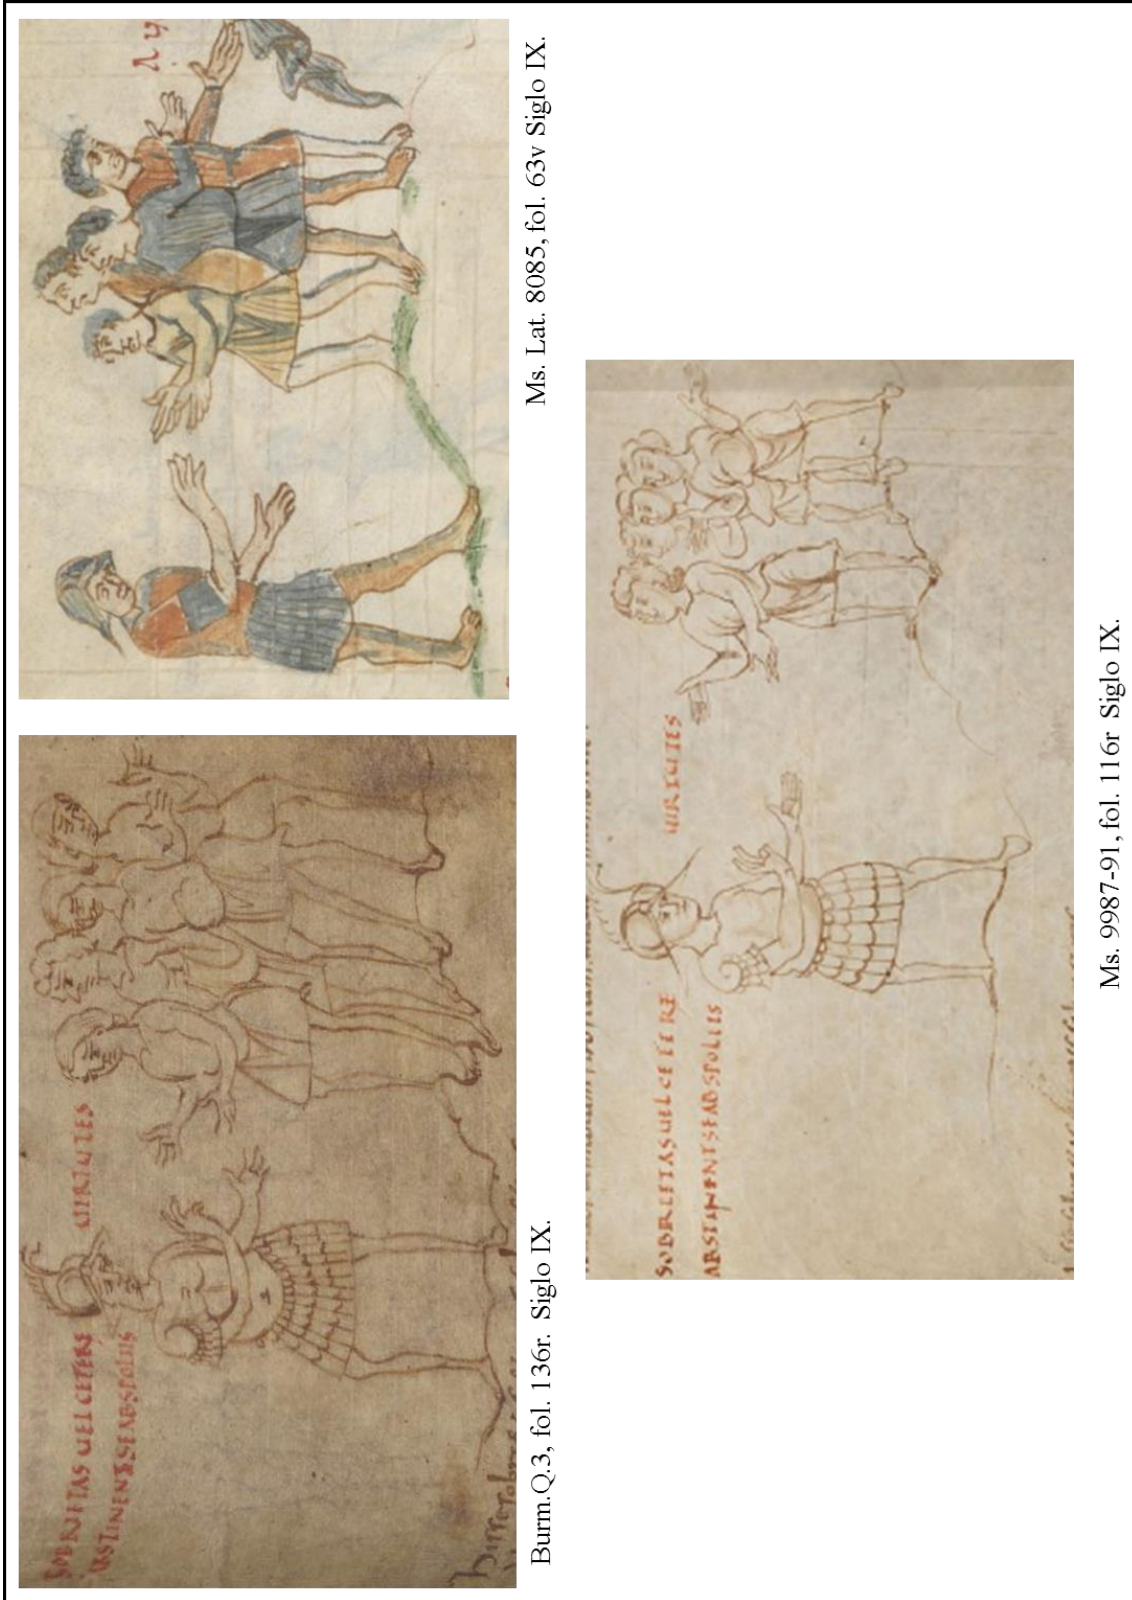 SOBRIETAS UEL CETERE UIRTUTES
ABSTINENT SE AB SPOLIIS
Burm.Q.3, fol. 136r. Siglo IX.
Ms. Lat. 8085, fol. 63v Siglo IX.
SOBRIETAS UEL CETERE UIRTUTES
ABSTINENT SE AB SPOLIIS
Ms. 9987-91, fol. 116r Siglo IX.